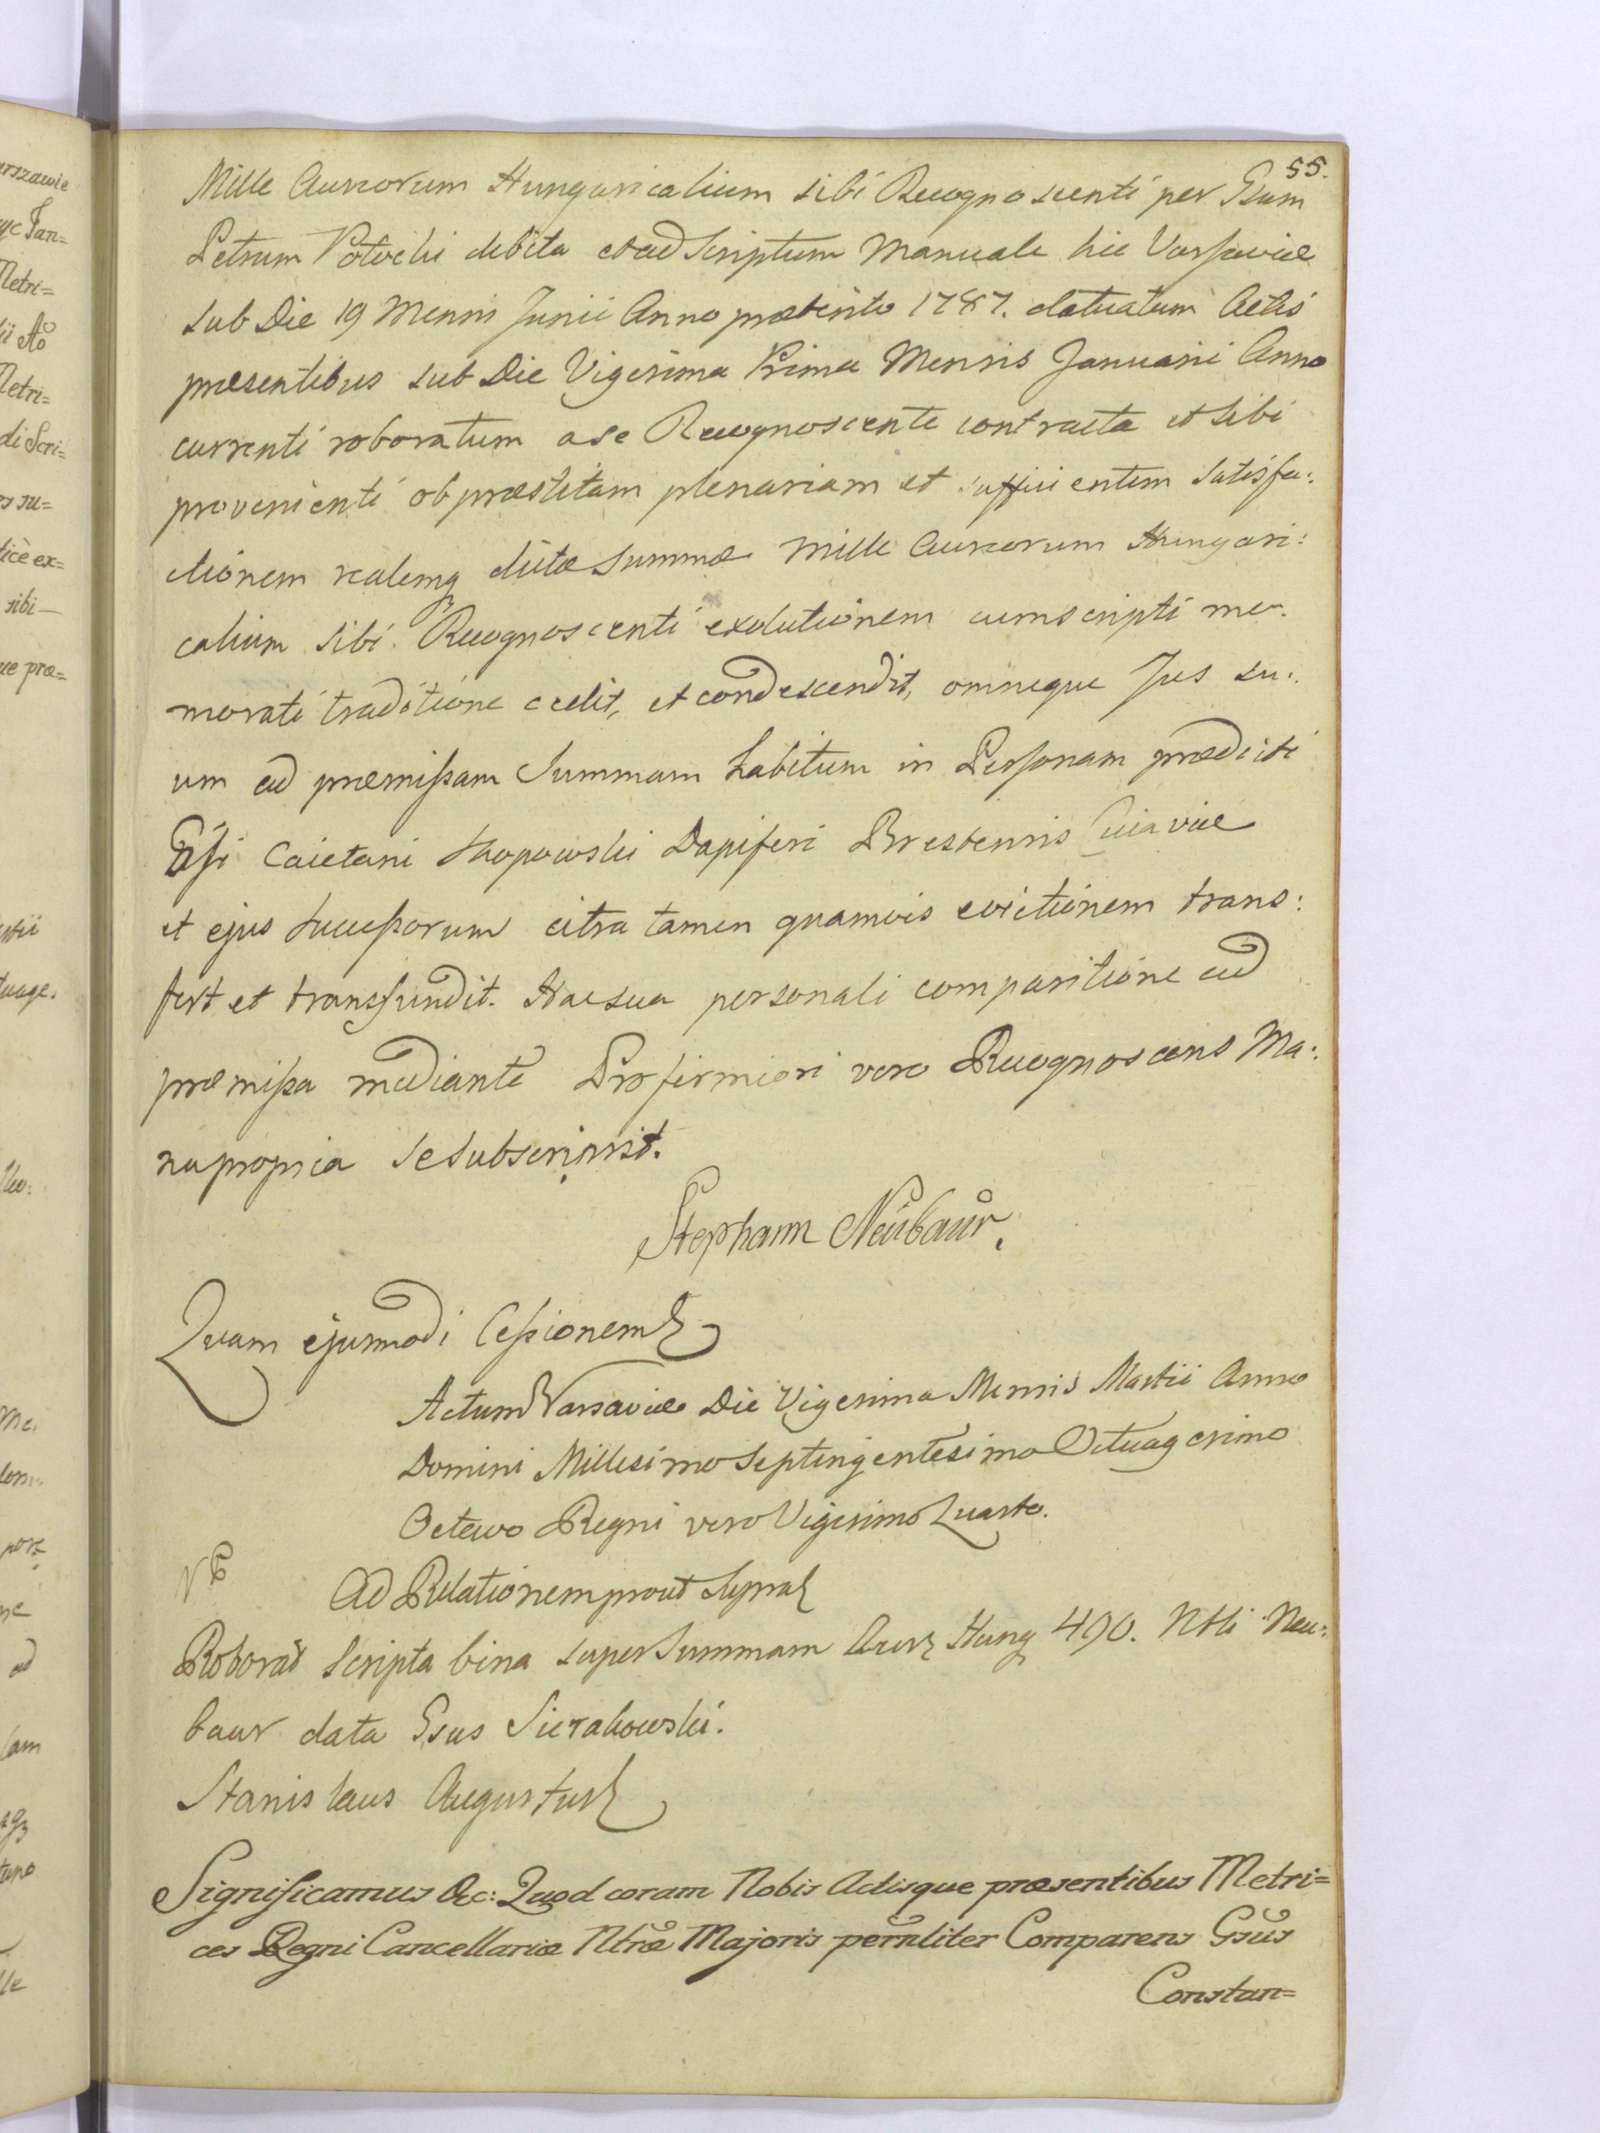 55.
Mille Aureorum Hungaricalium sibi Recognoscenti per Gsum
Petrum Potocki debita et ad Scriptum Manuale hic Varsaviæ
sub Die 19 Mensis Junii Anno præterito 1787. datuatum Actis
præsentibus sub Die Vigesima Prima Mensis Januarii Anno
currenti roboratum a se Recognoscente contracta et sibi
provenienti ob præstitam plenariam et sufficientem Satisfa:
ctionem realemq dictæ Summæ Mille Aureorum Hungari:
calium Sibi Recognoscenti exolutionem cum scripti me:
morati traditione cedit, et condescendit, omneque Jus su:
um ad præmissam Summam habitum in Personam prædicti
Gsi Caietani Dapiferi Brestensis Cuiaviæ
et ejus Successorum citra tamen quamvis evictionem trans:
fert et transfundit. Hac sua personali comparitione ad
præmissa mediante Pro firmiori vero Recognoscens Ma:
nu propria se subscripsit.
Stephann Neübaür.
Quam ejusmodi Cessionem
Actum Varsaviæ Die Vigesima Mensis Martii Anno
Domini Millesimo Septingentesimo Octuagesimo
Octavo Regni vero Vigesimo Quarto.
Ad Relationem prout supra
Roborat Scripta bina super Summam Aur Hung 490. Ntli Neu:
baur data Gsus Sierakowski.
Stanislaus Augustus
Significamus &c: Quod coram Nobis Actisque præsentibus Metri=
ces Regni Cancellariæ Ntræ Majoris pernliter Comparens Gsus
Constan=